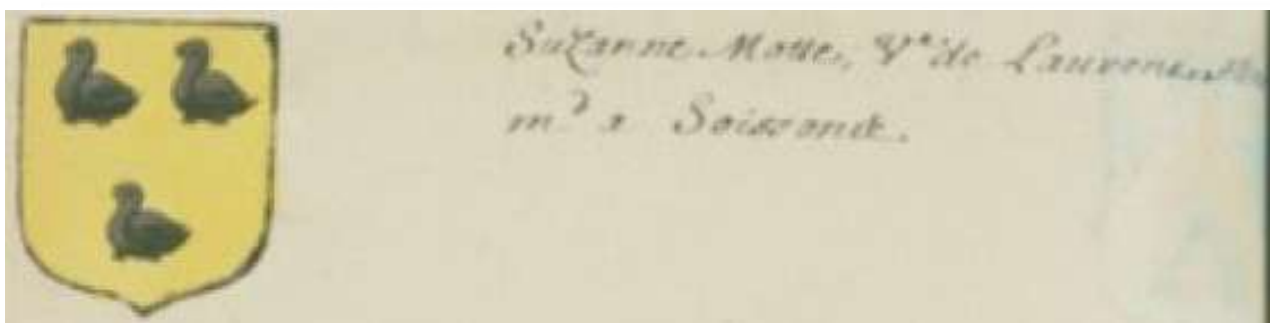 Suzanne Motte, Ve de Laurens
md a Soissons.